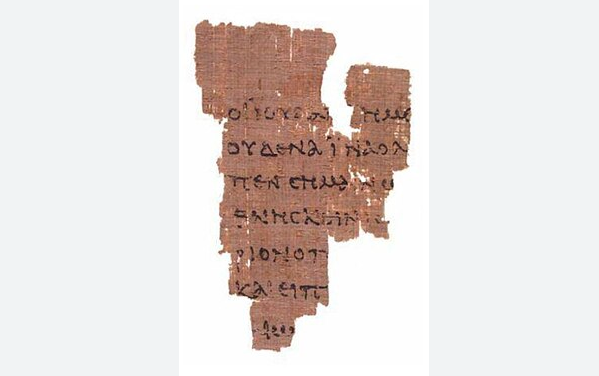 ΟΙ ΙΟΥΔΑΙ ΗΜΙ
ΟΥΔΕΝΑ ΙΝΑ Ο Λ
ΠΕΝ CΗΜΑΙΝΩ
ΘΝΗCΚΕΙΝ
ΡΙΟΝ Ο Π
ΚΑΙ ΕΙΠ